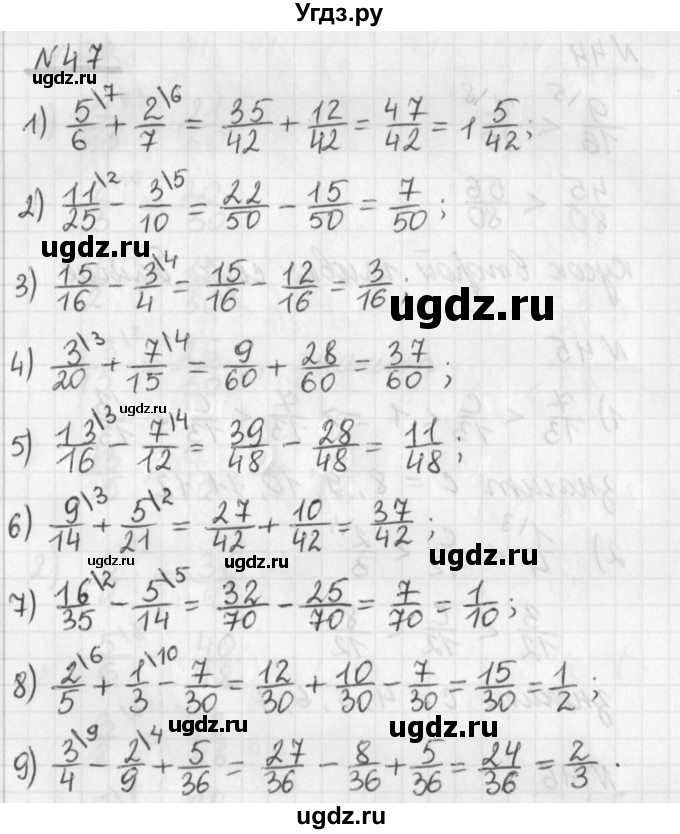 Угдз.ру
N47
ugdz.ru
1) 5/6\7 + 2/7\6 = 35/42 + 12/42 = 47/42 = 1 5/42;
2) 11/25\2 - 3/10\5 = 22/50 - 15/50 = 7/50;
ugdz.ru
3) 15/16 - 3/4\4 = 15/16 - 12/16 = 3/16;
ugdz.ru
4) 3/20\3 + 7/15\4 = 9/60 + 28/60 = 37/60;
ugdz.ru
5) 13/16\3 - 7/12\4 = 39/48 - 28/48 = 11/48;
6) 9/14\3 + 5/21\2 = 27/42 + 10/42 = 37/42;
ugdz.ru ugdz.ru ugdz.ru
7) 16/35\2 - 5/14\5 = 32/70 - 25/70 = 7/70 = 1/10;
8) 2/5\6 + 1/3\10 - 7/30 = 12/30 + 10/30 - 7/30 = 15/30 = 1/2;
ugdz.ru ugdz.ru
9) 3/4\9 - 2/9\4 + 5/36 = 27/36 - 8/36 + 5/36 = 24/36 = 2/3.
ugdz.ru